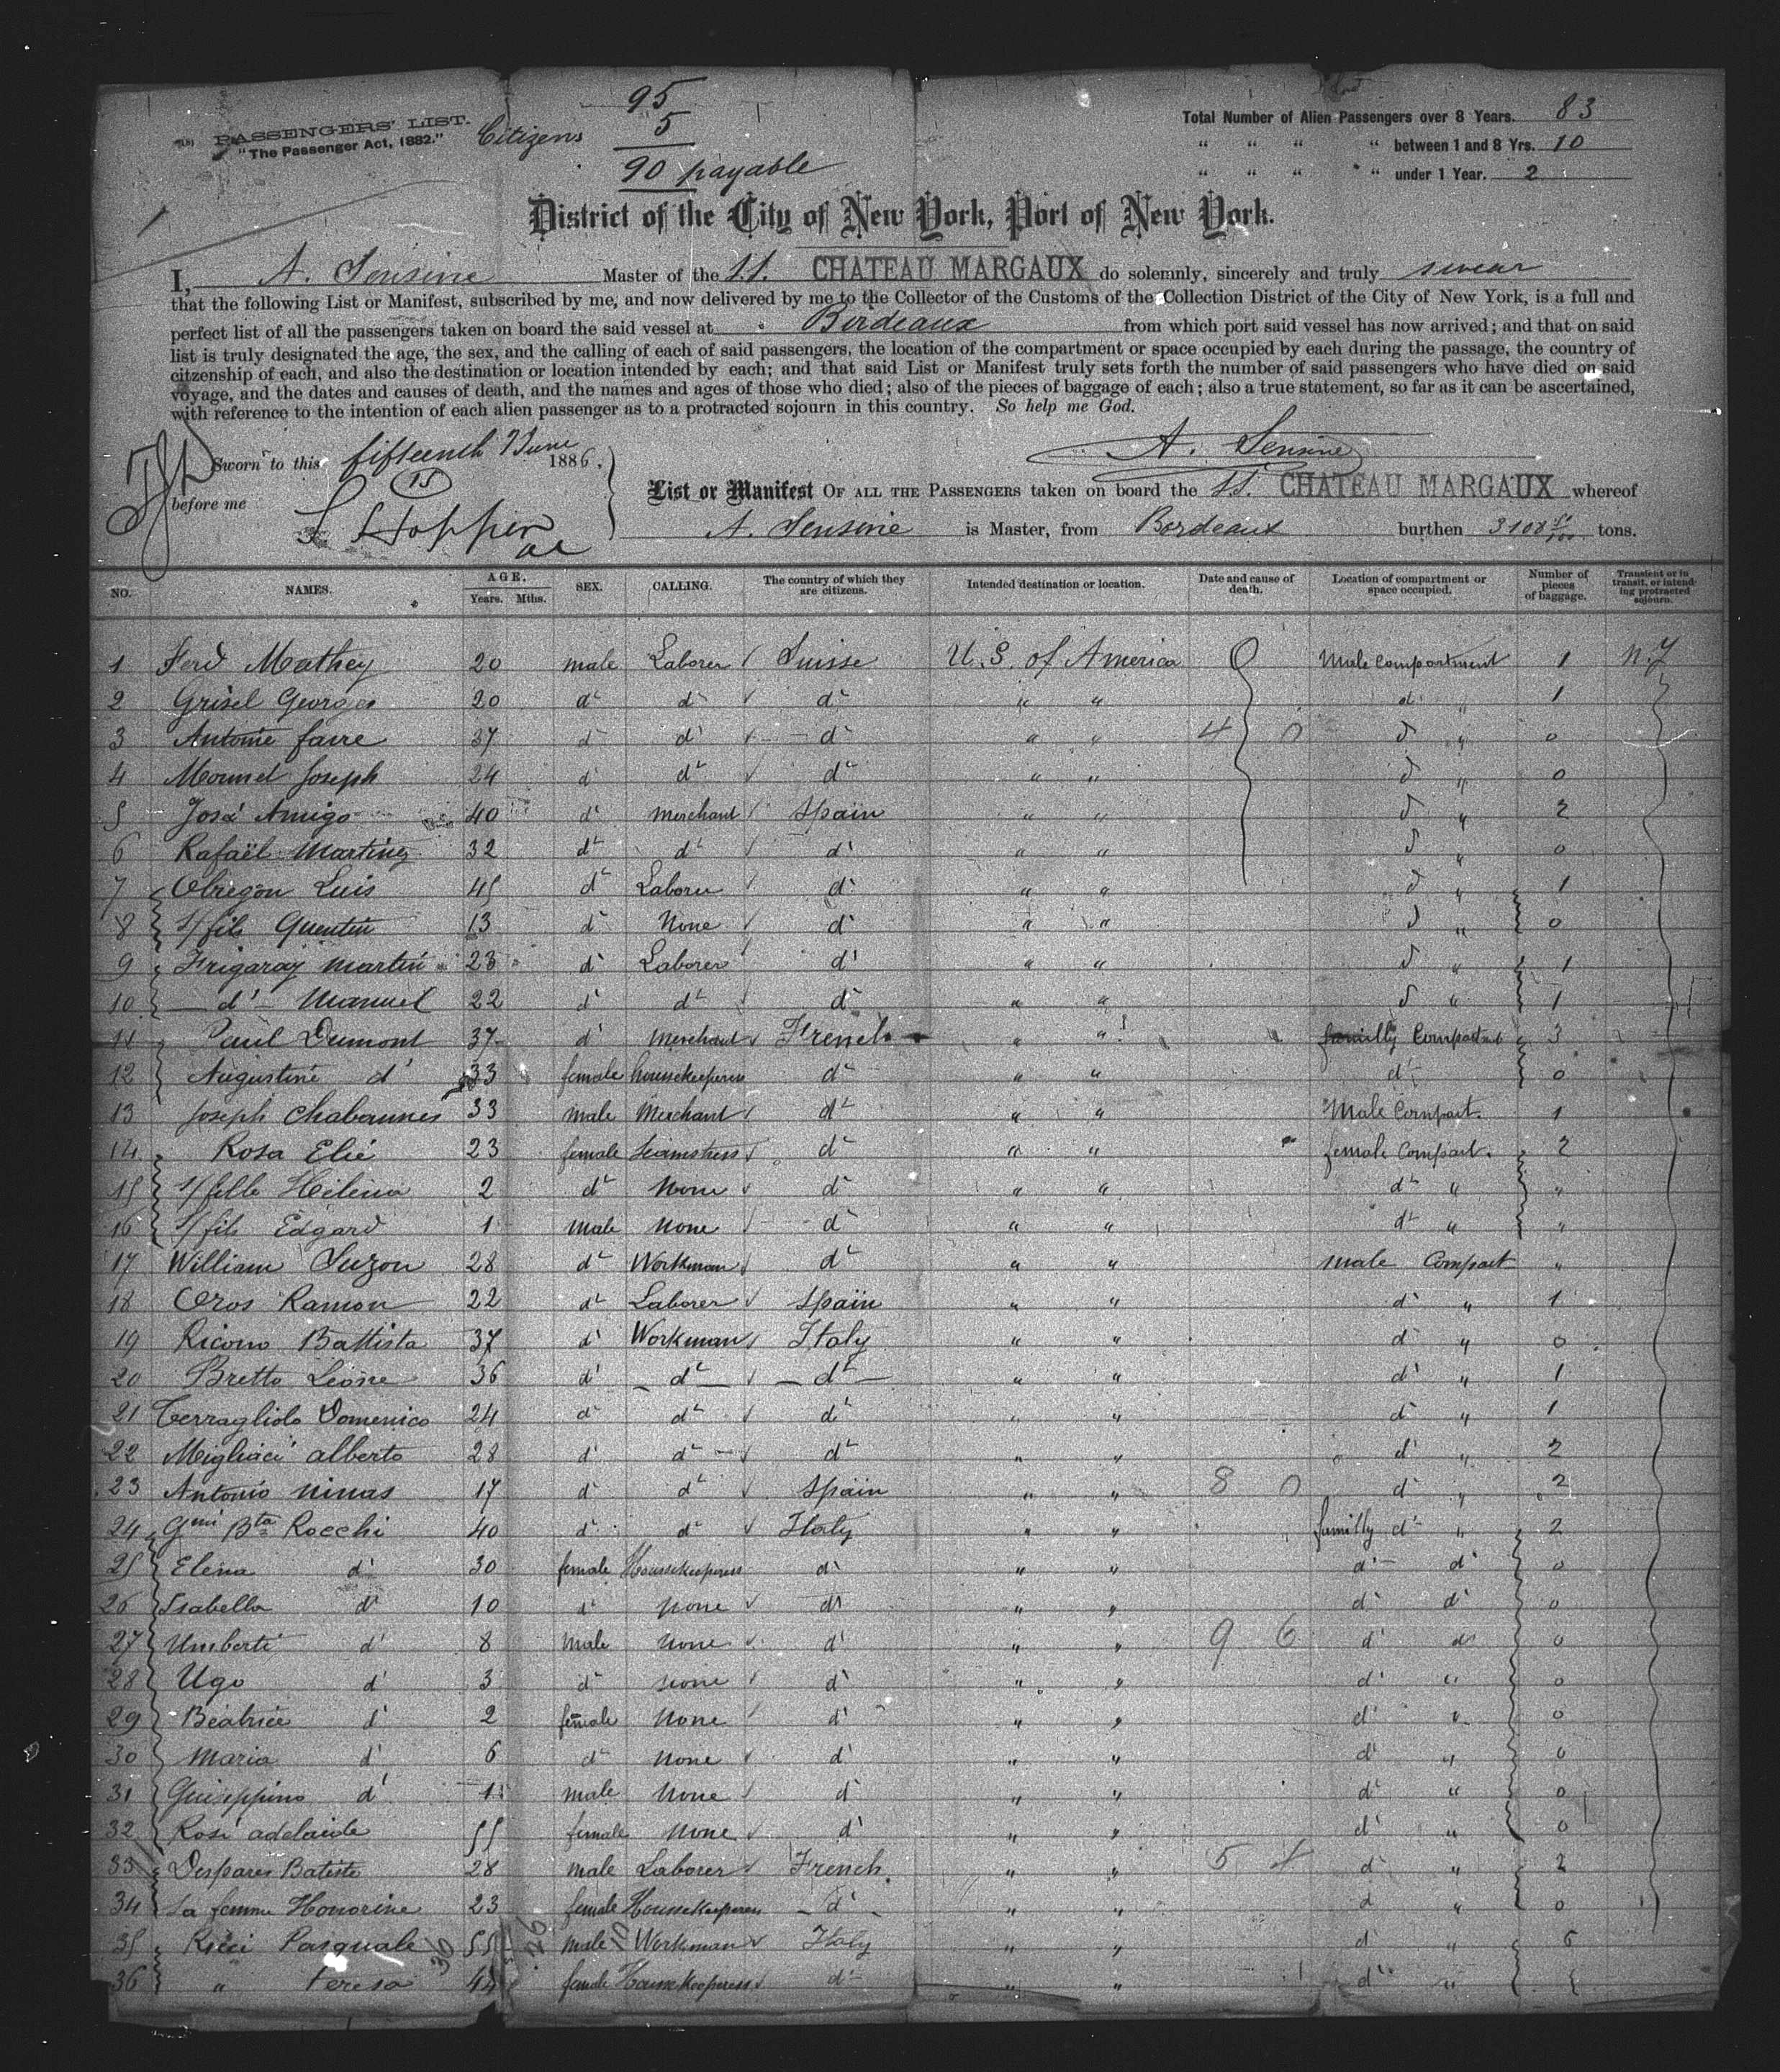 PASSENGERS' LIST.
"The Passenger Act, 1882."
Citizens
95
5
90 payable
Total Number of Alien Passengers over 8 Years. 83
" " " " between 1 and 8 Yrs. 10
" " " " under 1 Year. 2
District of the City of New York, Port of New York.
I, A. Sensine Master of the S.S. CHATEAU MARGAUX do solemnly, sincerely and truly swear
that the following List or Manifest, subscribed by me, and now delivered by me to the Collector of the Customs of the Collection District of the City of New York, is a full and
perfect list of all the passengers taken on board the said vessel at Bordeaux from which port said vessel has now arrived; and that on said
list is truly designated the age, the sex, and the calling of each of said passengers, the location of the compartment or space occupied by each during the passage, the country of
citzenship of each, and also the destination or location intended by each; and that said List or Manifest truly sets forth the number of said passengers who have died on said
voyage, and the dates and causes of death, and the names and ages of those who died; also of the pieces of baggage of each; also a true statement, so far as it can be ascertained,
with reference to the intention of each alien passenger as to a protracted sojourn in this country. So help me God.
A. Sensine
Sworn to this fifteenth June 1886.
15
before me
List or Manifest OF ALL THE PASSENGERS taken on board the S.S. CHATEAU MARGAUX whereof
A. Sensine is Master, from Bordeaux burthen 3108 51/100 tons.
NO. NAMES. AGE. Years. Mths. SEX. CALLING. The country of which they are citizens. Intended destination or location. Date and cause of death. Location of compartment or space occupied. Number of pieces of baggage. Transient or in transit, or intending protracted sojourn.
1 Ferd Mathey 20 male Laborer Suisse U.S. of America Male compartment 1 N.Y
2 Grisel Georges 20 do do do " " do " 1
3 Antoine Favre 37 do do do " " 4 0 do " 0
4 Mounet Joseph 24 do do do " " do " 0
5 José Amigo 40 do merchant Spain " " do " 2
6 Rafaël Martinez 32 do do do " " do " 0
7 Obregon Luis 45 do Laborer do " " do " 1
8 s/fils Quentin 13 do None do " " do " 0
9 Frigaray Martin 23 do Laborer do " " do " 1
10 do Manuel 22 do do do " " do " 1
11 Paul Dumont 37 do merchant French " " familly Compartmt 3
12 Augustine do 33 female houssekeeperess do " " do 0
13 Joseph Chabannes 33 male Merchant do " " Male Compart. 1
14 Rosa Elié 23 female Seamstress do " " female Compart. 2
15 s/fille Hélèna 2 do None do " " do " "
16 s/fils Edgard 1 male none do " " do " "
17 William Suzon 28 do Workman do " " male Compart "
18 Oros Ramon 22 do Laborer Spain " " do " 1
19 Ricono Battista 37 do Workman Italy " " do " 0
20 Bretto Leone 36 do do do " " do " 1
21 Terragliolo Domenico 24 do do do " " do " 1
22 Migliaci alberto 28 do do do " " do " 2
23 Antonio ninas 17 do do Spain " " 8 0 do " 2
24 Gmi Bta Rocchi 40 do do Italy " " familly do " 2
25 Elena do 30 female Houssekeeperess do " " do do 0
26 Isabella do 10 do none do " " do do 0
27 Umberti do 8 Male none do " " 9 6 do do 0
28 Ugo do 3 do none do " " do " 0
29 Béatrice do 2 female None do " " do " 0
30 Maria do 6 do none do " " do " 0
31 Guiseppino do 1 male None do " " do " 0
32 Rosi adelaide 55 female none do " " do " 0
33 Despares Batiste 28 male Laborer French " " 5 do " 2
34 Sa femme Honorine 23 female Houssekeeperess do " " do " 0
35 Ricci Pasquale 55 male Workman Italy " " do " 6
36 " Teresa 44 female Houssekeeperess do " " do "
36 26 10